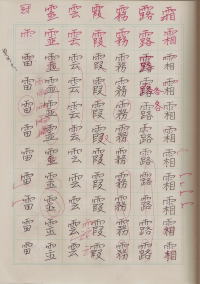 霜霜霜霜霜霜霜霜霜霜霜
露露露露露露露露露露露
各
各
霧霧霧霧霧霧霧霧霧霧霧
霞霞霞霞霞霞霞霞霞霞霞
雲雲雲雲雲雲雲雲雲雲雲
霊霊霊霊霊霊霊霊霊霊霊
雷雷雷雷雷雷雷雷雷雷